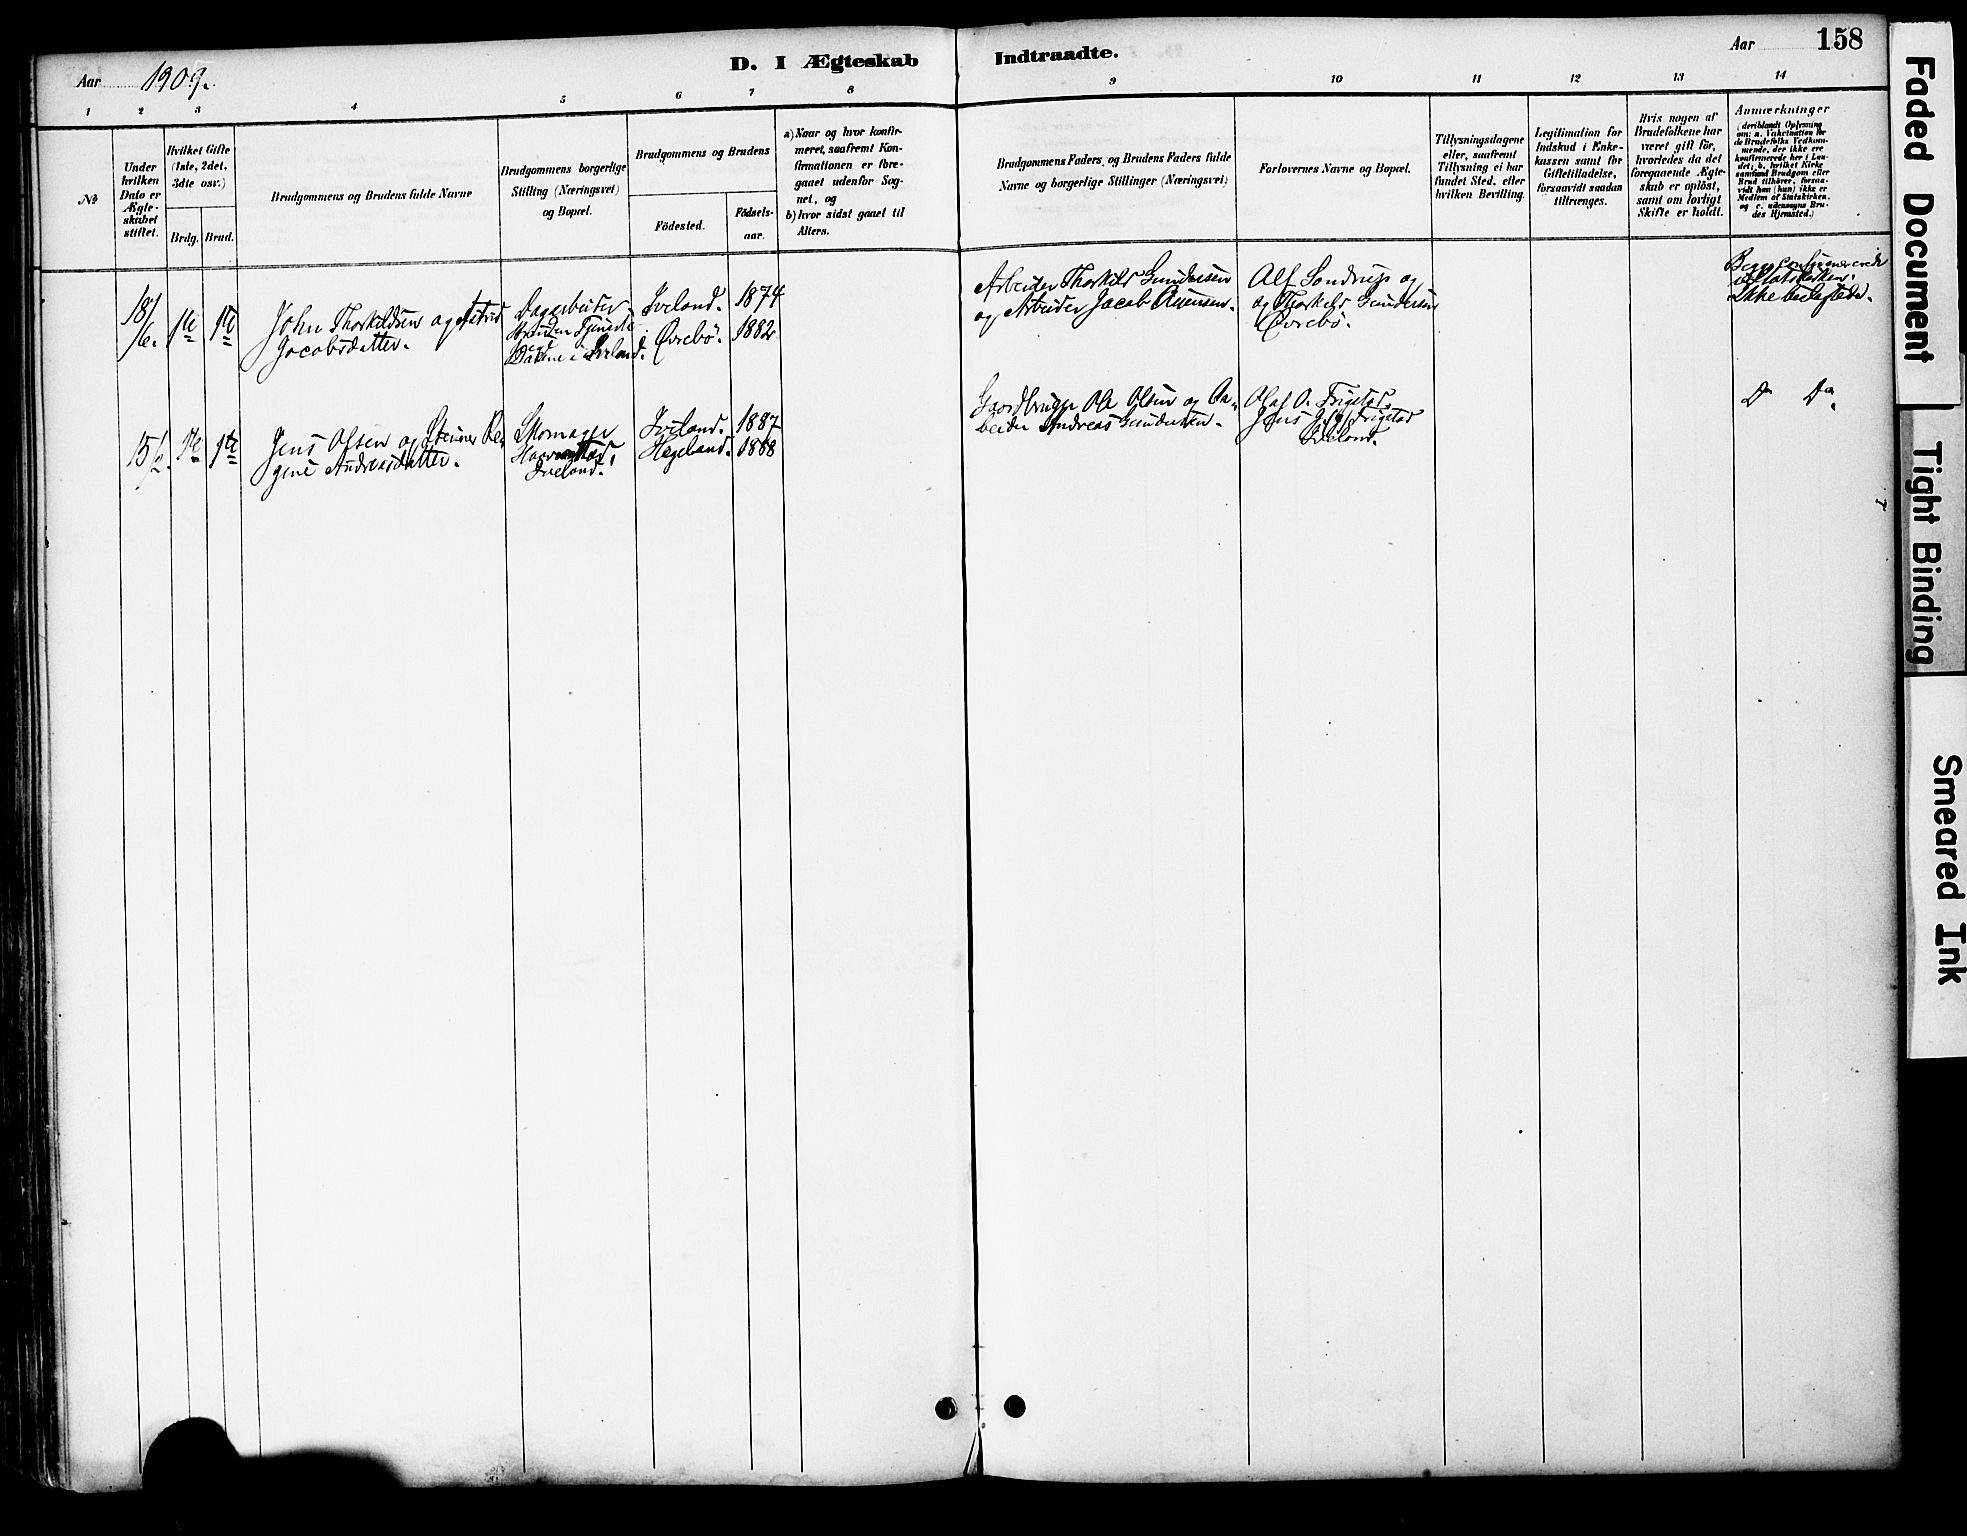 Aar 1909.
D. I Ægteskab
Indtraadte.
Aar
158
1
2
3
4
5
6
7
8
9
10
11
12
13
14
№
Under
hvilken
Dato er
Ægte-
skabet
stiftet.
Hvilket Gifte
(1ste, 2det,
3dte osv.)
Brdg.
Brud.
Brudgommens og Brudens fulde Navne
Brudgommens borgerlige
Stilling (Næringsvei)
og Bopæl.
Brudgommens og Brudens
Födested.
Födsels-
aar.
a) Naar og hvor konfir-
meret, saafremt Kon-
firmationen er fore-
gaaet udenfor Sog-
net, og
b) hvor sidst gaaet til
Alters.
Brudgommens Faders og Brudens Faders fulde
Navne og borgerlige Stillinger (Næringsvei)
Forlovernes Navne og Bopæl.
Tillysningsdagene
eller, saafremt
Tillysning ei har
fundet Sted, efter
hvilken Bevilling.
Legitimation for
Indskud i Enke-
kassen samt for
Giftetilladelse,
forsaavidt saadan
tiltrænges.
Hvis nogen af
Brudefolkene har
været gift för,
hvorledes da det
foregaaende Ægte-
skab er oplöst,
samt om lovligt
Skifte er holdt.
Anmærkninger
(deriblandt Oplysning
om: a. Vakcination for
de Brudefolks Vedkom-
mende, der ikke ere
konfirmerede her i Lan-
det; b. hvilket Kirke
samfund Brudgom eller
Brud tilhörer, forsaa-
vidt han (hun) ikke er
Medlem af Statskirken,
og c. udensogns Bru-
des Hjemsted.)
18/6.
1ste
1ste
John Thorkildsen og Astrid
Jacobsdatter.
Dagarbeider
Bruden Tjeneste
i Iveland.
Iveland.
Øvrebö.
1874
1882
Arbeider Thorkild Gundersen
og Arbeider Jacob
Alf Sondrup og
og Thorkild Gundersen
Øvrebö.
Begge confirmerede
i Statskirken.
Ikke beslegtede.
15/
1ste
1ste
Jens Olsen og Re-
gine Andreasdatter.
Skomager
Iveland.
Iveland.
Hegeland.
1887
1888
Gaardbruger Ole Olsen og Ar-
beider Andreas Gundersen.
Olaf O. Frigstad.
Jens Frigstad
Iveland.
Do Do
Faded Document
Tight Binding
Smeared Ink